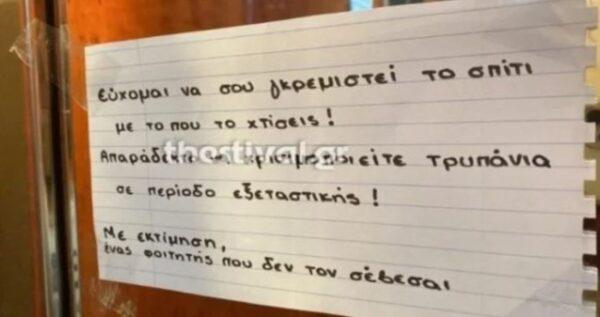 εύχομαι να σου γκρεμιστεί το σπίτι
με το που το χτίσεις!
Απαράδεκτο χρησιμοποιείτε τρυπάνια
σε περίοδο εξεταστικής!
Με εκτίμηση,
ένας φοιτητής που δεν τον σέβεσαι
thestival.gr